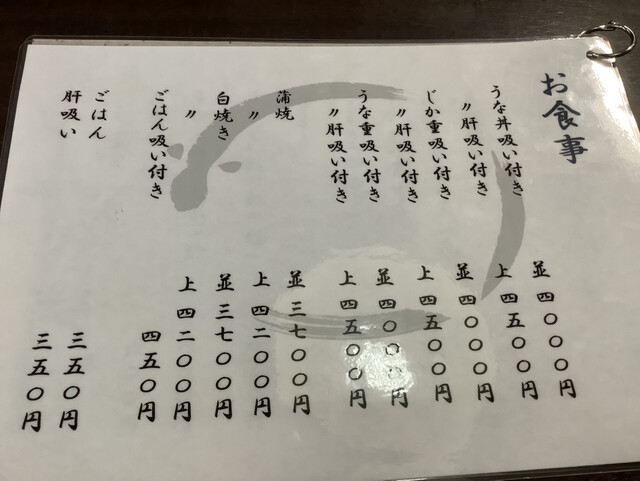 お食事
うな丼吸い付き 並 四〇〇〇円
〃肝吸い付き 上 四五〇〇円
じか重吸い付き 並 四〇〇〇円
〃肝吸い付き 上 四五〇〇円
うな重吸い付き 並 四〇〇〇円
〃肝吸い付き 上 四五〇〇円
蒲焼 並 三七〇〇円
〃 上 四二〇〇円
白焼き 並 三七〇〇円
〃 上 四二〇〇円
ごはん吸い付き 四五〇円
ごはん 三五〇円
肝吸い 三五〇円